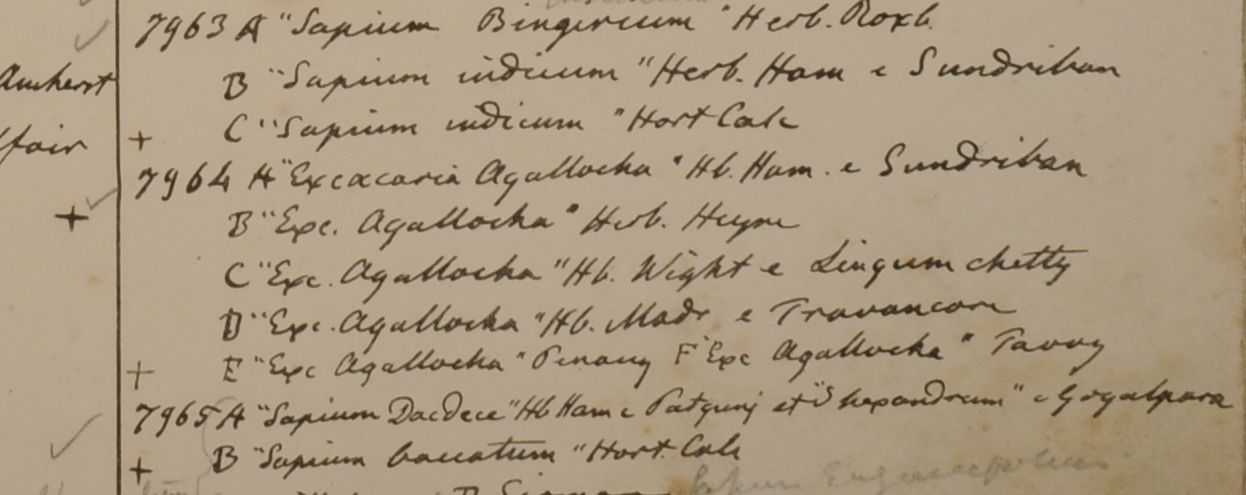 7963 A "Sapium Bingerium" Herb. Roxb.
B "Sapium indicum" Herb. Ham e Sundriban
Amherst
C "Sapium indicum" Hort Calc
+
7964 A "Excacaria Agallocha" Hb. Ham. e Sundriban
+ B "Exc. Agallocha" Herb. Heyne
C "Exc. Agallocha" Hb. Wight e Lingum chetty
D "Exc. Agallocha" Hb. Madr e Travancore
+ E "Exc Agallocha" Penang F "Exc Agallocha" Tavoy
7965 A "Sapium Dacdece" Hb Ham e Patgunj et "S hexandrum" e Goyalpara
+ B "Sapium baccatum" Hort Calc